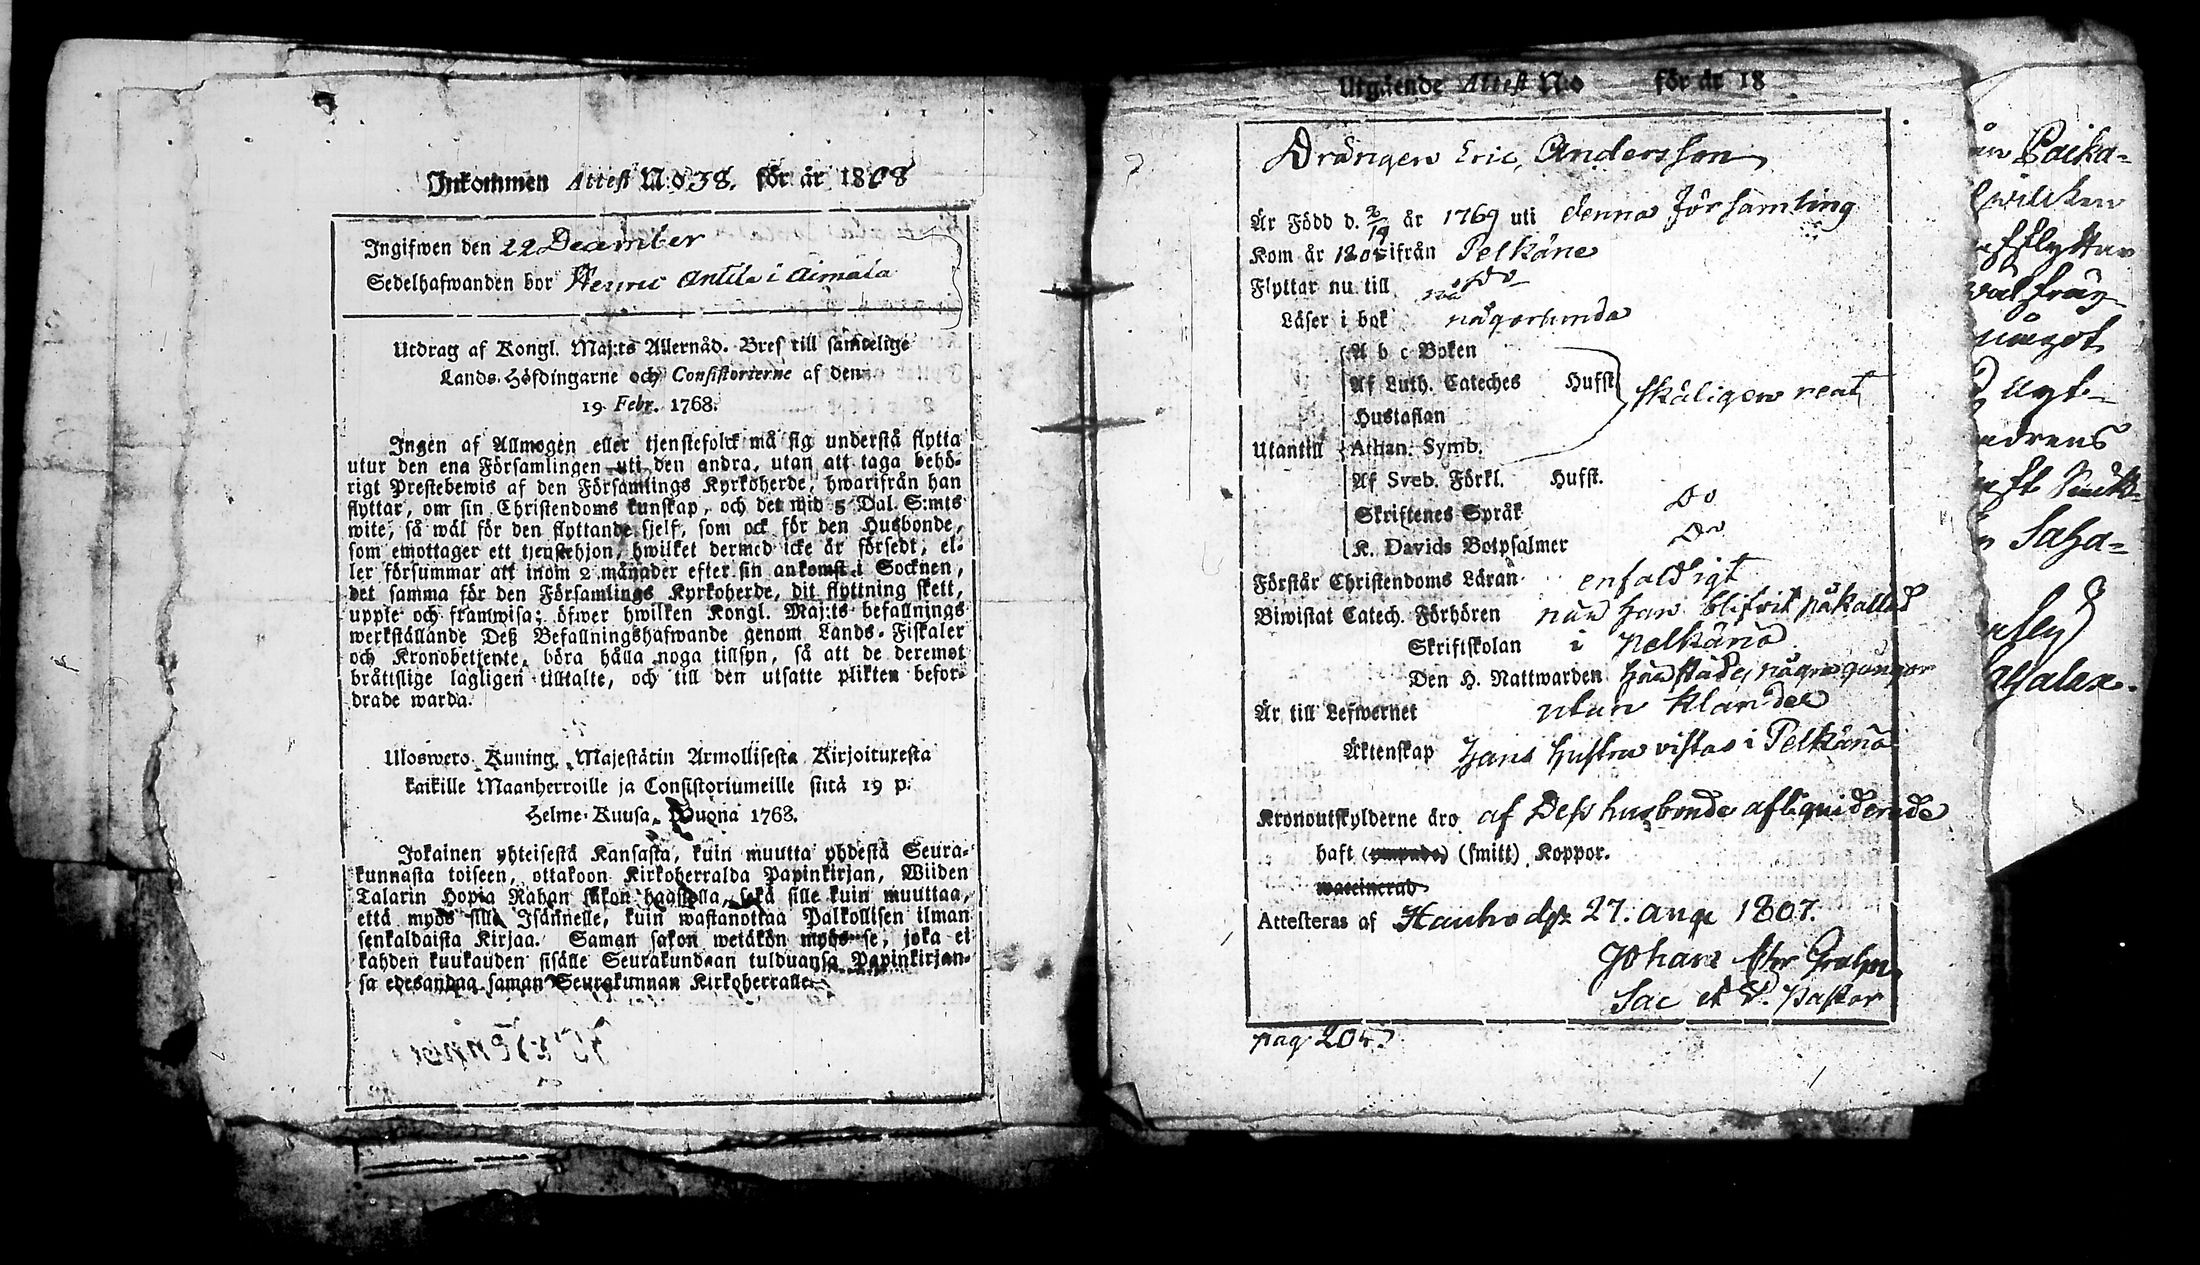 Inkommen Attest N:o 38. för år 1808
Ingifwen den 22 December
Sedelhafwanden bor Henric Antila i Aimala
Utdrag af Kongl. Maj:ts Allernåd. Bref till samtelige
Lands-Höfdingarne och Consistorierne af den
19 Febr. 1768.
Ingen af Allmogen eller tjenstefolck må sig understå flytta
utur den ena Församlingen uti den andra, utan att taga behö-
rigt Prestebewis af den Församlings Kyrkoherde, hwarifrån han
flyttar, om sin Christendoms kunskap, och det wid 5 Dal. S:mts
wite, så wäl för den flyttande sjelf, som ock för den Husbonde,
som emottager ett tjenstehjon, hwilket dermed icke är försedt, el-
ler försummar att inom 2 månader efter sin ankomst i Socknen,
det samma för den Församlings Kyrkoherde, dit flyttning skett,
uppte och framwisa; öfwer hwilken Kongl. Maj:ts befallnings
werkställande Deß Befallningshafwande genom Lands-Fiskaler
och Kronobetjente, böra hålla noga tillsyn, så att de deremot
bråttslige lagligen tilltalte, och till den utsatte plikten befor-
drade warda.
Uloswero Kuning. Majestätin Armollisesta Kirjoituxesta
kaikille Maanherroille ja Consistoriumeille siitä 19 p:
Helme-Kuusa, Wuonna 1768.
Jokainen yhteisestä Kansasta, kuin muutta yhdestä Seura-
kunnasta toiseen, ottakoon Kirkoherralda Papinkirjan, Wiiden
Talarin Hopia Rahan sakon haastolla, sekä sille kuin muuttaa,
että myös sille Isännelle, kuin wastanottaa Palkollisen ilman
senkaldaista Kirjaa. Saman sakon wetäkön myös se, joka ei
kahden kuukauden sisälle Seurakundaan tulduansa Papinkirjan-
sa edesandaa saman Seurakunnan Kirkoherralle.
Utgående Attest N:o för år 18
Drängen Eric Andersson
Är Född d. 2/19 år 1769 uti denna Församling
Kom år 1805 ifrån Pelkäne
Flyttar nu till Do
Läser i bok någorlunda
A b c Boken
Af Luth. Cateches Hufst. skäligen rent
Hustaflan
Utantill Athan. Symb.
Af Sveb. Förkl. Hufst.
Skriftenes Språk Do
K. Davids Botpsalmer Do
Förstår Christendoms Läran enfaldigt
Biwistat Catech. Förhören när han blifvit påkallad
Skriftskolan i Pelkänä
Den H. Nattwarden härstädes några gånger
Är till Lefwernet utan klander
Äktenskap Hans hustru vistas i Pelkänä
Kronoutskylderne äro af Dess husbonde afliqviderade
haft (ympade) (smitt) Koppor.
waccinerad
Attesteras af Hauho d. 27. aug 1807.
Johan
Sac et V. Pastor
pag 205.